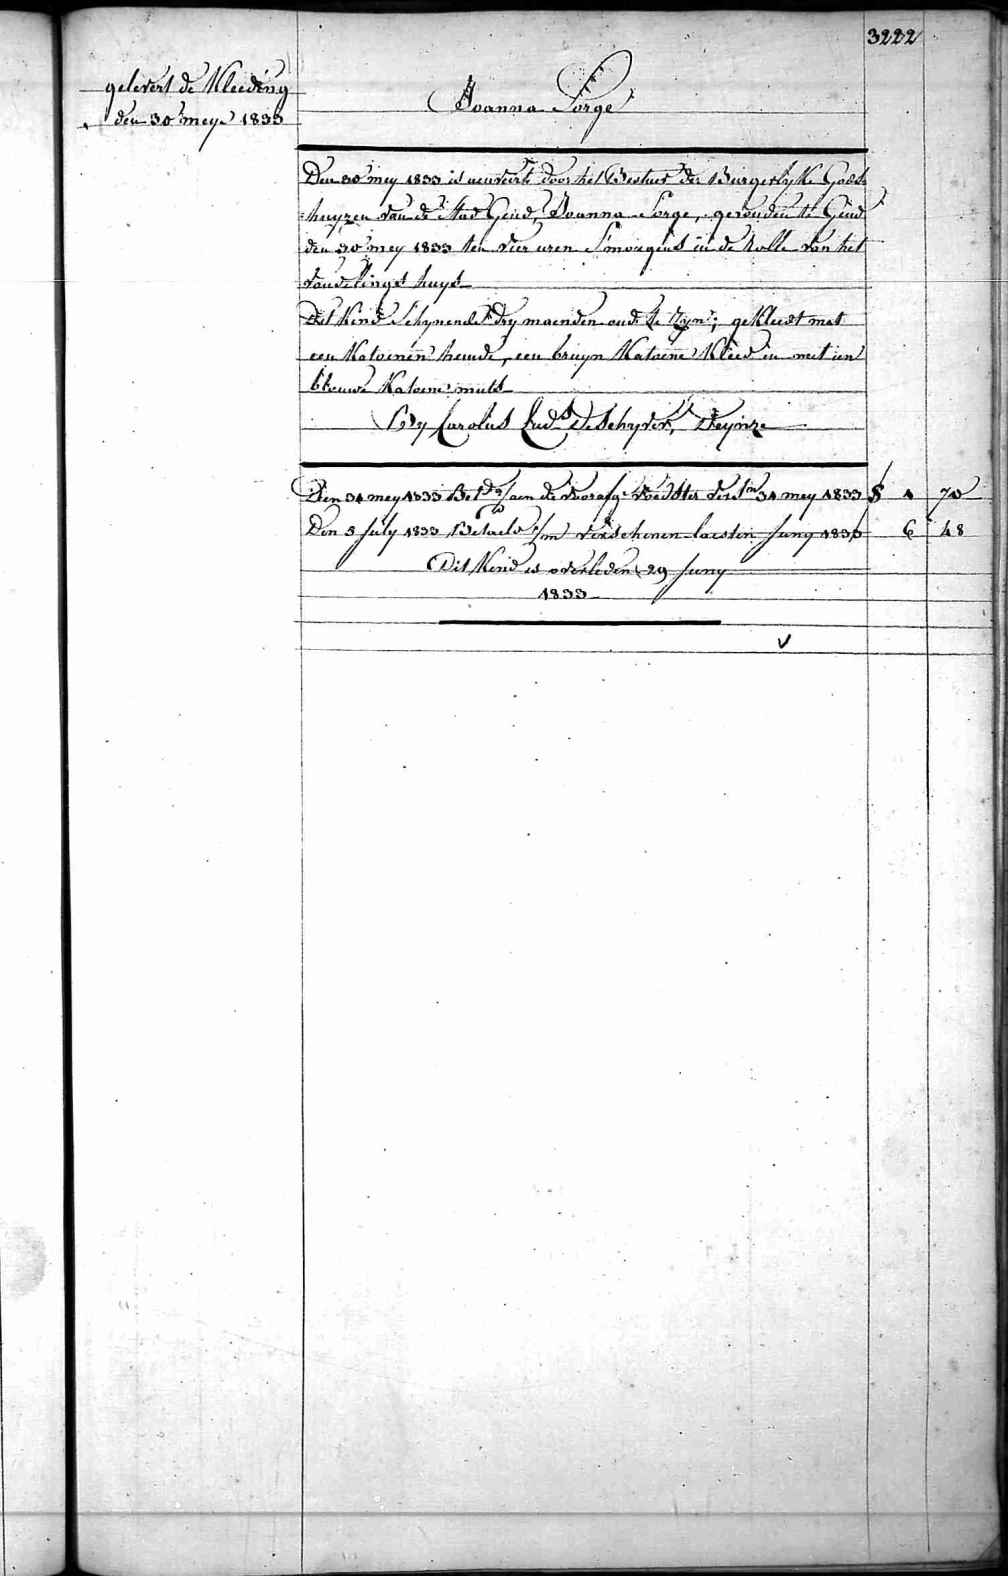 3222
gelevert de Kleeding
den 30 mey 1833
Joanna Sorge
Den 30 mey 1833 is aenveirt door het Bestuer der Burgerlyke Gods-
huyzen van de Stad Gend, Joanna Sorge, gevonden te Gend
den 30 mey 1833 ten vier uren S'morgens in de Rolle van het
vondelings huys
Dit Kind Schynende dry maenden oud te zyn, gekleedt met
een Katoenen hemde, een bruyn Katoene Kleed en met een
blauwe Katoene muts
By Carolus Lud. Deschyver, Deynze
Den 31 mey 1833 Bet. aen de voedster 31 mey 1833 1 70
Den 5 july 1833 Betaeld verschenen laesten juny 1833 6 48
Dit Kind is overleden 29 juny
1833